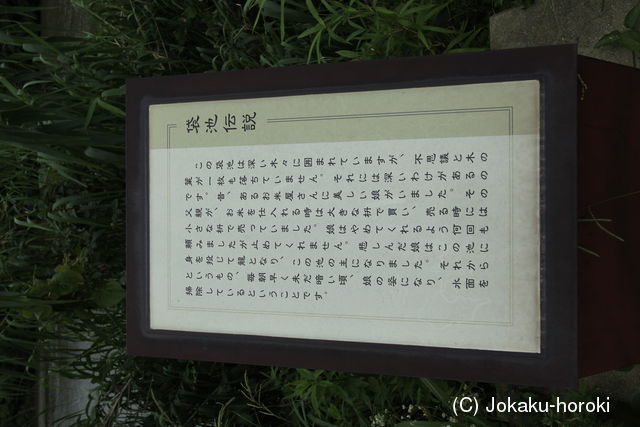 袋池伝説
この袋池は深い木々に囲まれていますが、不思議と木の
葉が一枚も落ちていません。それには深いわけがあるの
です。昔、あるお米屋さんに美しい娘がいました。その
父親が、お米を仕入れる時は大きな枡で買い、売る時には
小さな枡で売っていました。娘はやめてくれるよう何回も
頼みましたが止めてくれません。悲しんだ娘はこの池に
身を投じて龍となり、この池の主になりました。それから
というもの、毎朝早く未だ暗い頃、娘の姿になり、水面を
掃除しているということです。
(C) Jokaku-horoki